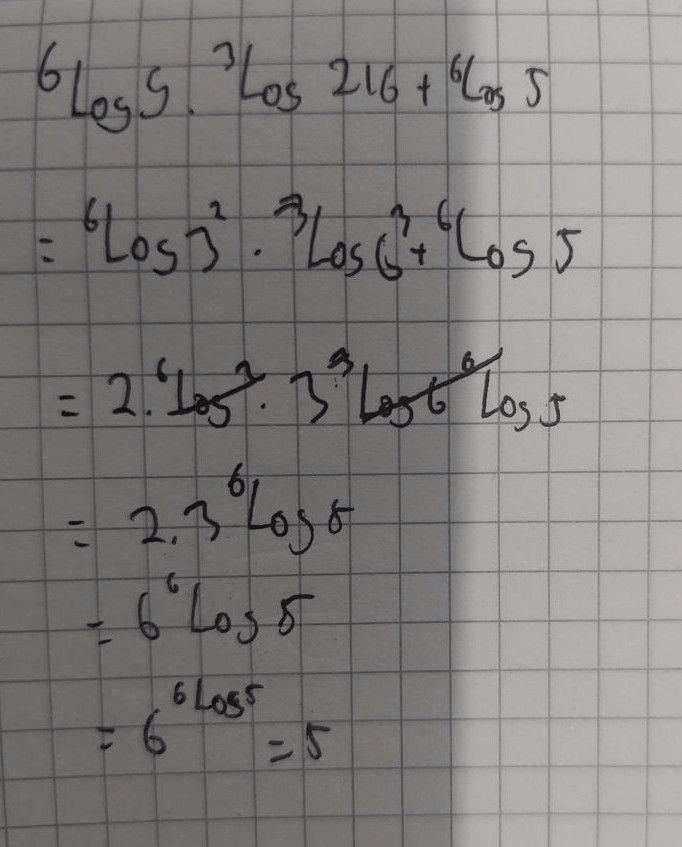 ⁶Log 9 . ³Log 216 + ⁶Log 5
= ⁶Log 3² . ³Log 6³ + ⁶Log 5
= 2 . ⁶Log ³ . 3 ³Log 6 ⁶Log 5
= 2.3 ⁶Log 5
= 6 ⁶Log 5
= 6^⁶Log 5 = 5